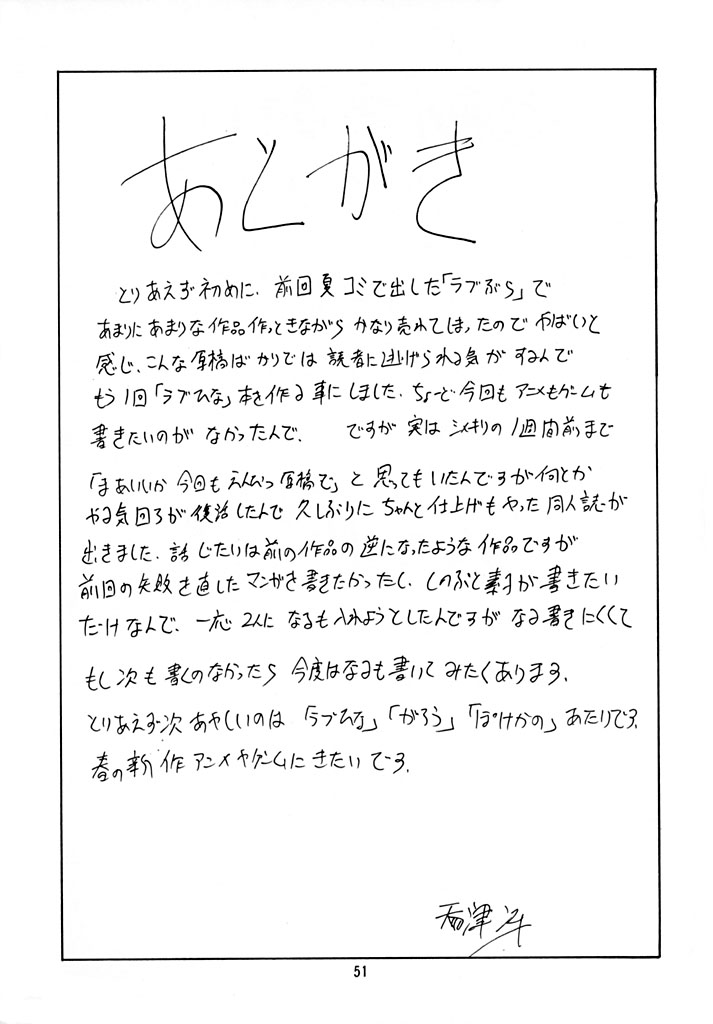 あとがき
とりあえず初めに、前回夏コミで出した「ラブぶら」で
あまりにあまりな作品作っときながらかなり売れてしまったのでやばいと
感じ、こんな原稿ばかりでは読者に逃げられる気がするんで
もう1回「ラブひな」本を作る事にしました、ちょーど今回もアニメもゲームも
書きたいのがなかったんで、 ですが実はシメキリの1週間前まで
「まあいいか今回もえんぴつ原稿で」と思ってもいたんですが何とか
やる気回路が復活したんで久しぶりにちゃんと仕上げもやった同人誌が
出きました、話じたいは前の作品の逆になったような作品ですが
前回の失敗を直したマンガを書きたかったし、しのぶと素子が書きたい
だけなんで、一応2人になるも入れようとしたんですがなる書きにくくて
もし次も書くのなかったら今度はなるも書いてみたくあります、
とりあえず次あやしいのは「ラブひな」「がろう」「ぽけかの」あたりです、
春の新作アニメやゲームにきたいです、
51